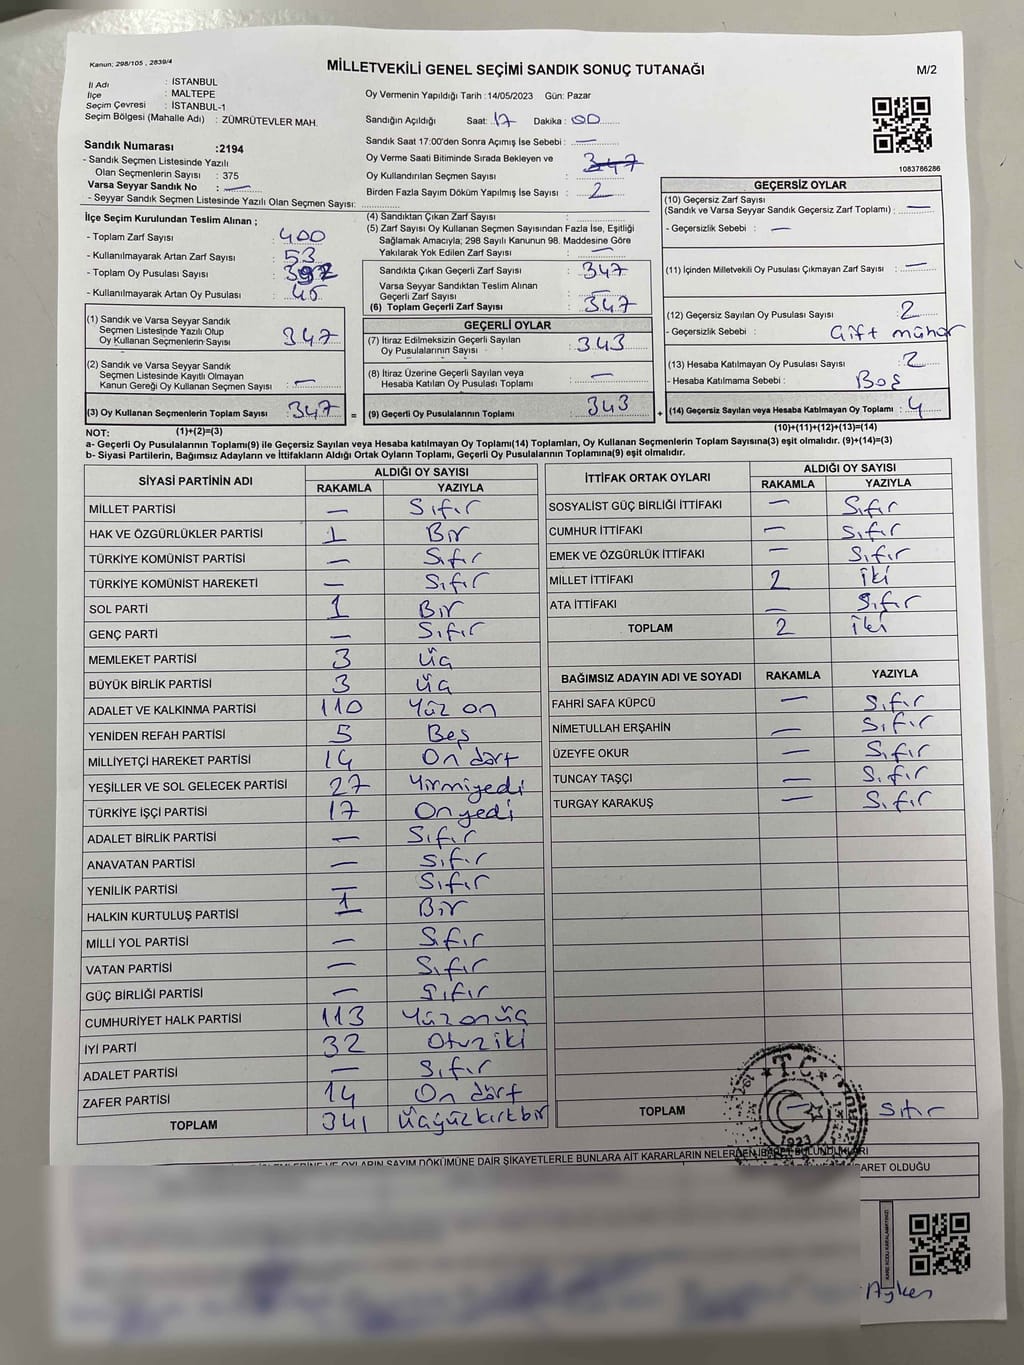 Kanun; 298/105 , 2839/4
MİLLETVEKİLİ GENEL SEÇİMİ SANDIK SONUÇ TUTANAĞI
M/2
İl Adı : İSTANBUL
İlçe : MALTEPE
Seçim Çevresi : İSTANBUL-1
Seçim Bölgesi (Mahalle Adı) : ZÜMRÜTEVLER MAH.
Oy Vermenin Yapıldığı Tarih :14/05/2023 Gün: Pazar
Sandığın Açıldığı Saat: 17 Dakika: 00
Sandık Saat 17:00'den Sonra Açımış İse Sebebi : —
Oy Verme Saati Bitiminde Sırada Bekleyen ve
Oy Kullandırılan Seçmen Sayısı : 347
Birden Fazla Sayım Döküm Yapılmış İse Sayısı : 2
1083786286
Sandık Numarası :2194
- Sandık Seçmen Listesinde Yazılı
Olan Seçmenlerin Sayısı : 375
Varsa Seyyar Sandık No : —
- Seyyar Sandık Seçmen Listesinde Yazılı Olan Seçmen Sayısı:
İlçe Seçim Kurulundan Teslim Alınan ;
- Toplam Zarf Sayısı : 400
- Kullanılmayarak Artan Zarf Sayısı : 53
- Toplam Oy Pusulası Sayısı : 392
- Kullanılmayarak Artan Oy Pusulası : 45
(1) Sandık ve Varsa Seyyar Sandık
Seçmen Listesinde Yazılı Olup
Oy Kullanan Seçmenlerin Sayısı : 347
(2) Sandık ve Varsa Seyyar Sandık
Seçmen Listesinde Kayıtlı Olmayan
Kanun Gereği Oy Kullanan Seçmen Sayısı : —
(3) Oy Kullanan Seçmenlerin Toplam Sayısı : 347
(1)+(2)=(3)
(4) Sandıktan Çıkan Zarf Sayısı :
(5) Zarf Sayısı Oy Kullanan Seçmen Sayısından Fazla İse, Eşitliği
Sağlamak Amacıyla; 298 Sayılı Kanunun 98. Maddesine Göre
Yakılarak Yok Edilen Zarf Sayısı : —
Sandıkta Çıkan Geçerli Zarf Sayısı : 347
Varsa Seyyar Sandıktan Teslim Alınan
Geçerli Zarf Sayısı : —
(6) Toplam Geçerli Zarf Sayısı : 347
GEÇERLİ OYLAR
(7) İtiraz Edilmeksizin Geçerli Sayılan
Oy Pusulalarının Sayısı : 343
(8) İtiraz Üzerine Geçerli Sayılan veya
Hesaba Katılan Oy Pusulası Toplamı : —
= (9) Geçerli Oy Pusulalarının Toplamı : 343
GEÇERSİZ OYLAR
(10) Geçersiz Zarf Sayısı
(Sandık ve Varsa Seyyar Sandık Geçersiz Zarf Toplamı) : —
- Geçersizlik Sebebi : —
(11) İçinden Milletvekili Oy Pusulası Çıkmayan Zarf Sayısı : —
(12) Geçersiz Sayılan Oy Pusulası Sayısı : 2
- Geçersizlik Sebebi : Çift mühür
(13) Hesaba Katılmayan Oy Pusulası Sayısı : 2
- Hesaba Katılmama Sebebi : Boş
+ (14) Geçersiz Sayılan veya Hesaba Katılmayan Oy Toplamı : 4
(10)+(11)+(12)+(13)=(14)
NOT:
a- Geçerli Oy Pusulalarının Toplamı(9) ile Geçersiz Sayılan veya Hesaba katılmayan Oy Toplamı(14) Toplamları, Oy Kullanan Seçmenlerin Toplam Sayısına(3) eşit olmalıdır. (9)+(14)=(3)
b- Siyasi Partilerin, Bağımsız Adayların ve İttifakların Aldığı Ortak Oyların Toplamı, Geçerli Oy Pusulalarının Toplamına(9) eşit olmalıdır.
SİYASİ PARTİNİN ADI ALDIĞI OY SAYISI
RAKAMLA YAZIYLA
MİLLET PARTİSİ — Sıfır
HAK VE ÖZGÜRLÜKLER PARTİSİ 1 Bir
TÜRKİYE KOMÜNİST PARTİSİ — Sıfır
TÜRKİYE KOMÜNİST HAREKETİ — Sıfır
SOL PARTİ 1 Bir
GENÇ PARTİ — Sıfır
MEMLEKET PARTİSİ 3 Üç
BÜYÜK BİRLİK PARTİSİ 3 Üç
ADALET VE KALKINMA PARTİSİ 110 Yüz on
YENİDEN REFAH PARTİSİ 5 Beş
MİLLİYETÇİ HAREKET PARTİSİ 14 On dört
YEŞİLLER VE SOL GELECEK PARTİSİ 27 Yirmiyedi
TÜRKİYE İŞÇİ PARTİSİ 17 Onyedi
ADALET BİRLİK PARTİSİ — Sıfır
ANAVATAN PARTİSİ — Sıfır
YENİLİK PARTİSİ — Sıfır
HALKIN KURTULUŞ PARTİSİ 1 Bir
MİLLİ YOL PARTİSİ — Sıfır
VATAN PARTİSİ — Sıfır
GÜÇ BİRLİĞİ PARTİSİ — Sıfır
CUMHURİYET HALK PARTİSİ 113 Yüz onüç
İYİ PARTİ 32 Otuz iki
ADALET PARTİSİ — Sıfır
ZAFER PARTİSİ 14 On dört
TOPLAM 341 Üçyüzkırkbir
İTTİFAK ORTAK OYLARI ALDIĞI OY SAYISI
RAKAMLA YAZIYLA
SOSYALİST GÜÇ BİRLİĞİ İTTİFAKI — Sıfır
CUMHUR İTTİFAKI — Sıfır
EMEK VE ÖZGÜRLÜK İTTİFAKI — Sıfır
MİLLET İTTİFAKI 2 İki
ATA İTTİFAKI — Sıfır
TOPLAM 2 İki
BAĞIMSIZ ADAYIN ADI VE SOYADI RAKAMLA YAZIYLA
FAHRİ SAFA KÜPCÜ — Sıfır
NİMETULLAH ERŞAHİN — Sıfır
ÜZEYFE OKUR — Sıfır
TUNCAY TAŞÇI — Sıfır
TURGAY KARAKUŞ — Sıfır
TOPLAM — Sıfır
T.C.
1923
OYLARIN SAYIM DÖKÜMÜNE DAİR ŞİKAYETLERLE BUNLARA AİT KARARLARIN NELERDEN İBARET BULUNDUKLARI
OLDUĞU